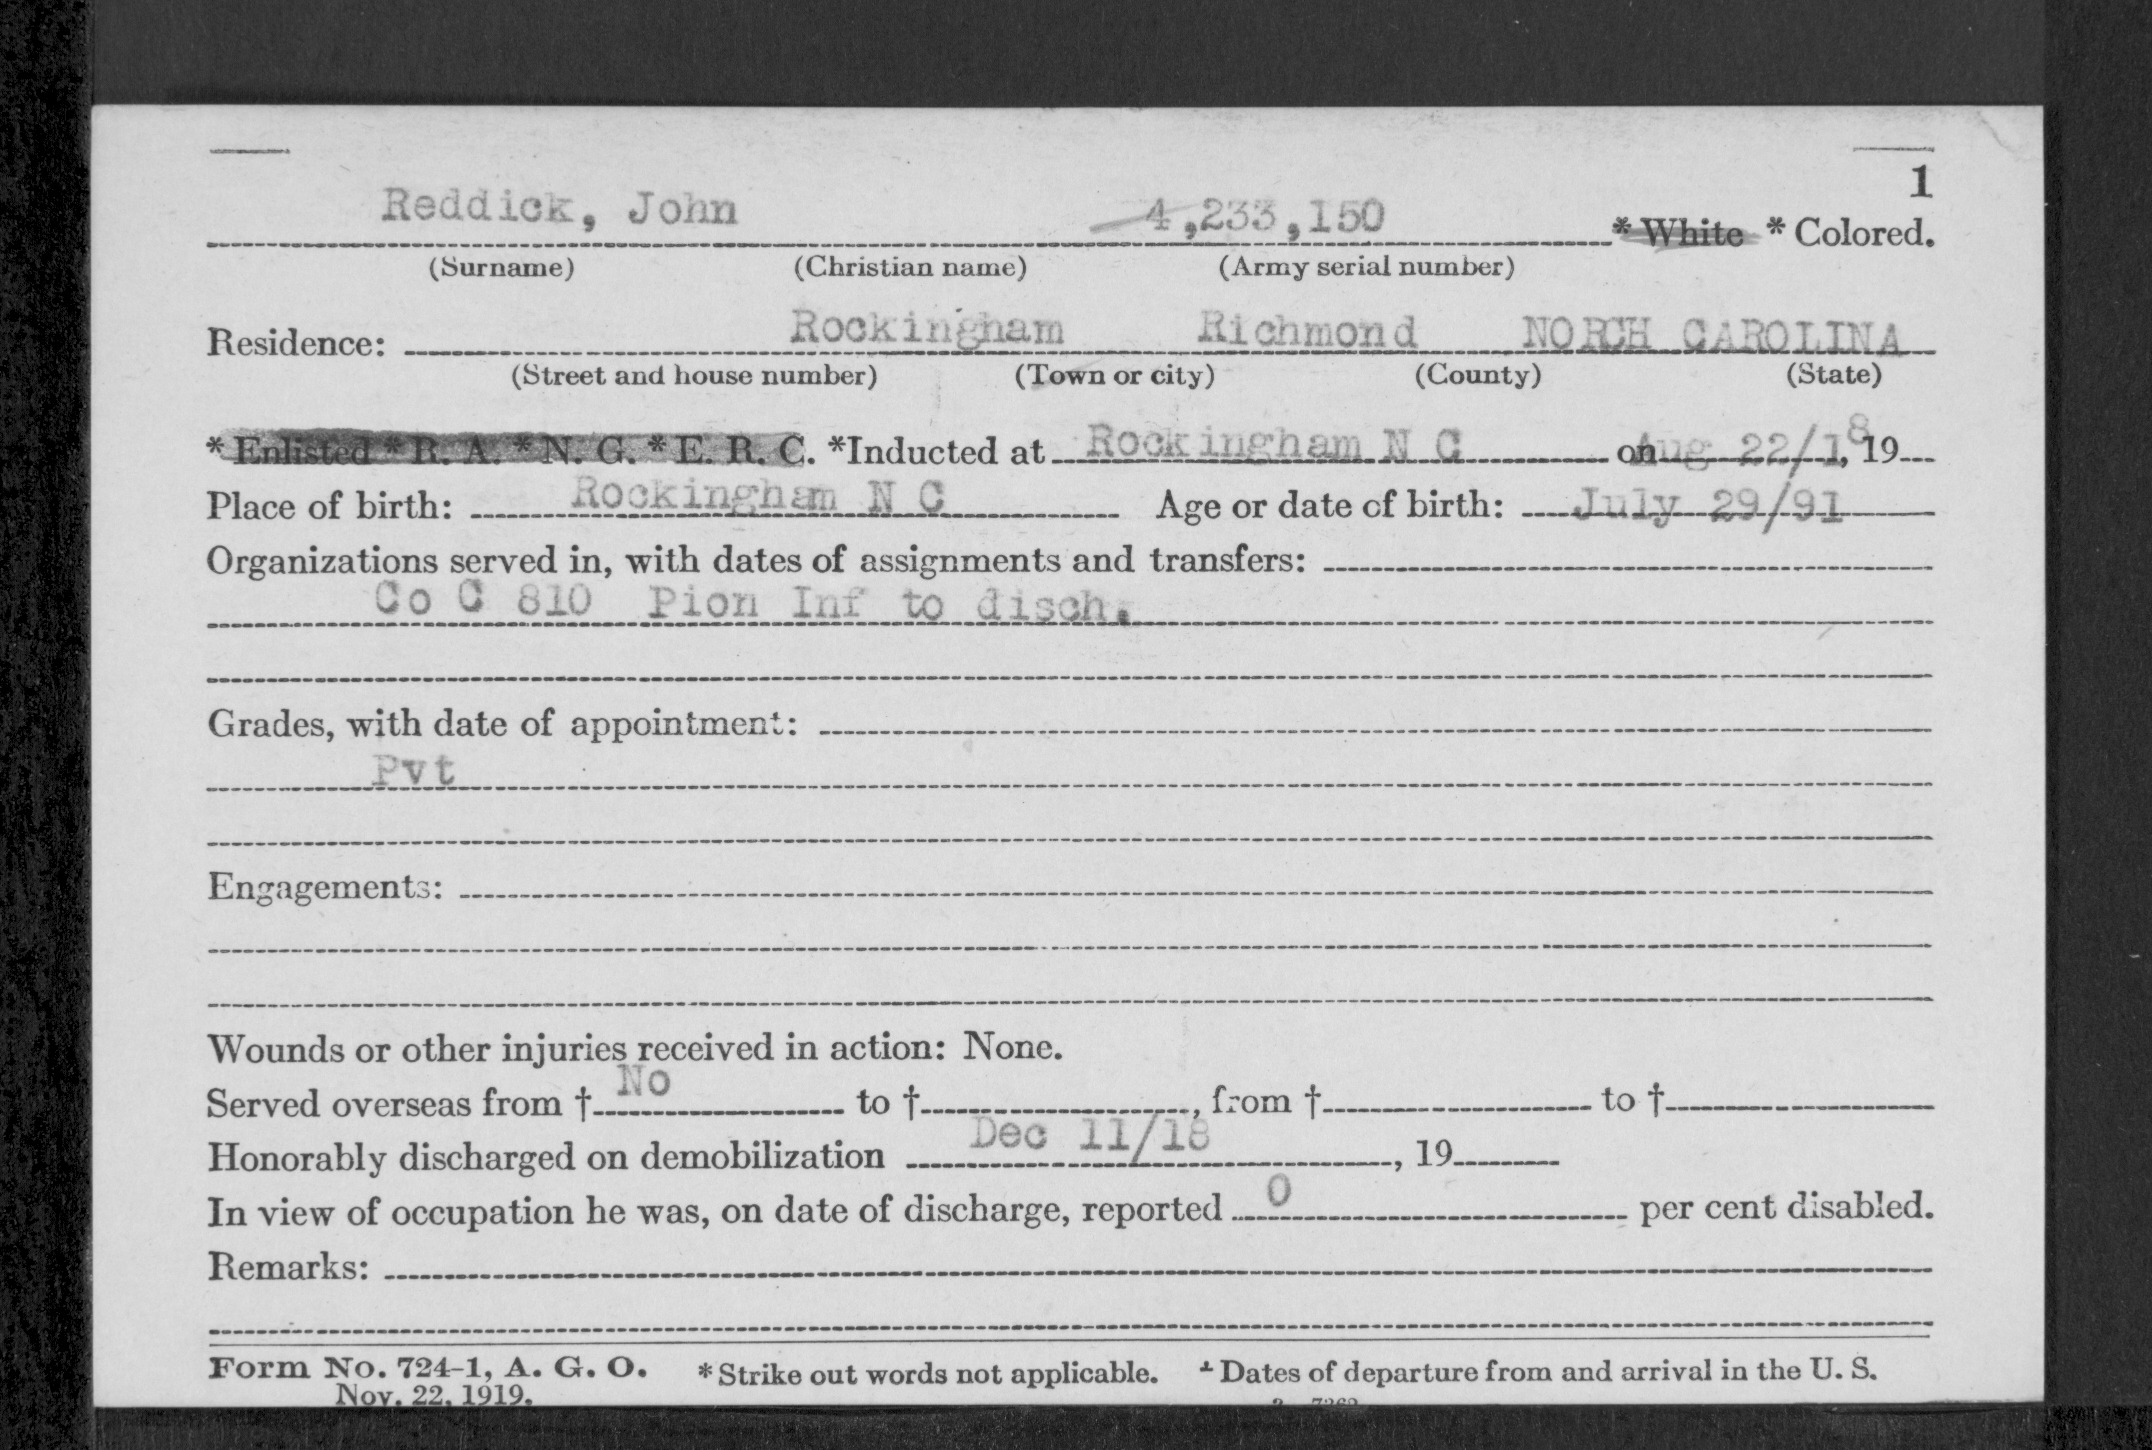 1
Reddick, John 4,233,150 * White * Colored.
(Surname) (Christian name) (Army serial number)
Residence: Rockingham Richmond NORTH CAROLINA
(Street and house number) (Town or city) (County) (State)
* Enlisted * R. A. * N. G. * E. R. C. *Inducted at Rockingham N C on Aug 22/18, 19
Place of birth: Rockingham N C Age or date of birth: July 29/91
Organizations served in, with dates of assignments and transfers:
Co C 810 Pion Inf to disch.
Grades, with date of appointment:
Pvt
Engagements:
Wounds or other injuries received in action: None.
Served overseas from † No to †, from † to †
Honorably discharged on demobilization Dec 11/18, 19
In view of occupation he was, on date of discharge, reported 0 per cent disabled.
Remarks:
Form No. 724-1, A. G. O. * Strike out words not applicable. † Dates of departure from and arrival in the U. S.
Nov. 22, 1919.